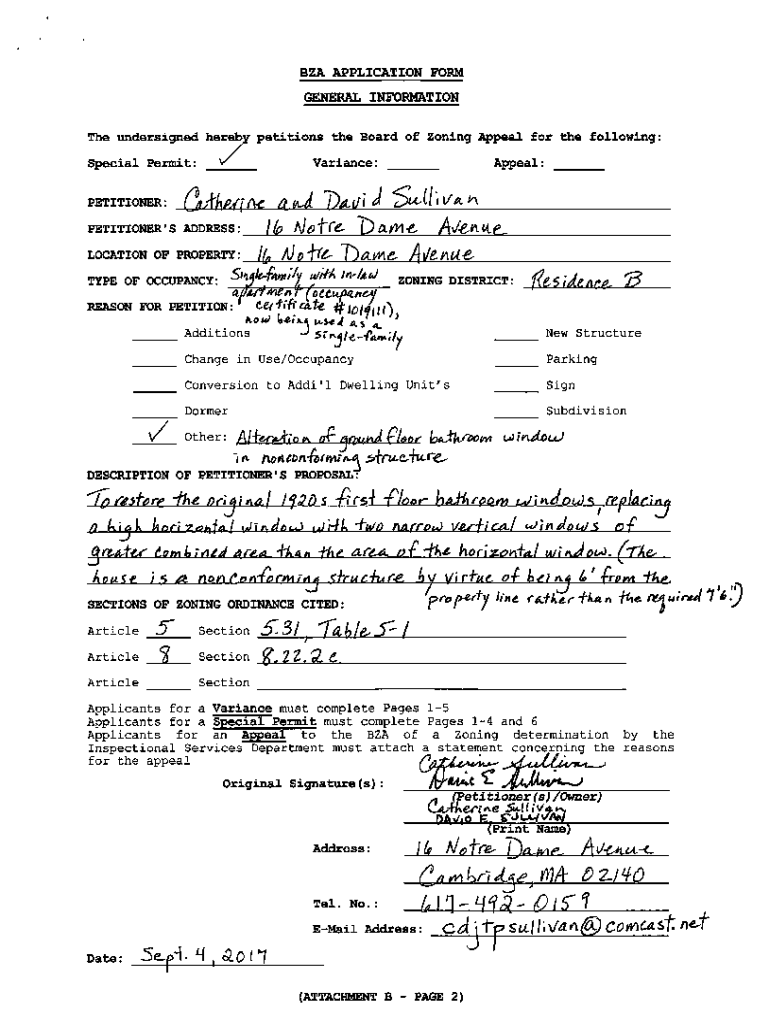 BZA APPLICATION FORM
GENERAL INFORMATION
The undersigned hereby petitions the Board of Zoning Appeal for the following:
Special Permit: ✓ Variance: ______ Appeal: ______
PETITIONER: Catherine and David Sullivan
PETITIONER'S ADDRESS: 16 Notre Dame Avenue
LOCATION OF PROPERTY: 16 Notre Dame Avenue
TYPE OF OCCUPANCY: Single-family with in-law ZONING DISTRICT: Residence B
apartment (occupancy
REASON FOR PETITION: certificate #101911),
now being used as a
______ Additions single-family ______ New Structure
______ Change in Use/Occupancy ______ Parking
______ Conversion to Addi'l Dwelling Unit's ______ Sign
______ Dormer ______ Subdivision
✓ Other: Alteration of ground floor bathroom window
in nonconforming structure
DESCRIPTION OF PETITIONER'S PROPOSAL:
To restore the original 1920s first floor bathroom windows, replacing
a high horizontal window with two narrow vertical windows of
greater combined area than the area of the horizontal window. (The
house is a nonconforming structure by virtue of being 6' from the
property line rather than the required 7'6".)
SECTIONS OF ZONING ORDINANCE CITED:
Article 5 Section 5.31, Table 5-1
Article 8 Section 8.22.2c
Article ______ Section ______
Applicants for a Variance must complete Pages 1-5
Applicants for a Special Permit must complete Pages 1-4 and 6
Applicants for an Appeal to the BZA of a Zoning determination by the
Inspectional Services Department must attach a statement concerning the reasons
for the appeal
Catherine Sullivan
Original Signature(s): David E Sullivan
(Petitioner(s)/Owner)
Catherine Sullivan
DAVID E. SULLIVAN
(Print Name)
Address: 16 Notre Dame Avenue
Cambridge, MA 02140
Tel. No.: 617-492-0159
E-Mail Address: cdjtpsullivan@comcast.net
Date: Sept. 4, 2017
(ATTACHMENT B - PAGE 2)